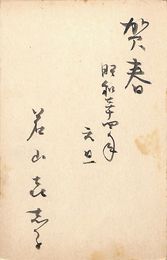 賀春
昭和 十四年
元旦
若山喜志子